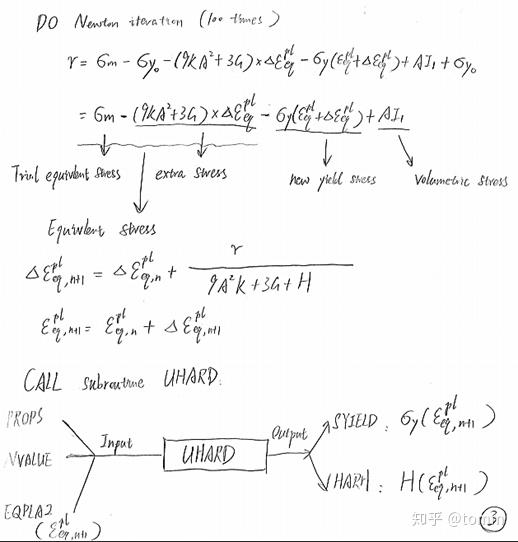 DO Newton iteration (100 times)
r = σm - σy₀ - (9KA²+3G)×Δε_eq^pl - σy(ε_eq^pl+Δε_eq^pl) + AI₁ + σy₀
= σm - (9KA²+3G)×Δε_eq^pl - σy(ε_eq^pl+Δε_eq^pl) + AI₁
Trial equivalent stress extra stress new yield stress volumetric stress
Equivalent stress
Δε_eq,n+1^pl = Δε_eq,n^pl + r / (9A²K+3G+H)
ε_eq,n+1^pl = ε_eq,n^pl + Δε_eq,n+1^pl
CALL subroutine UHARD.
PROPS
NVALUE
EQPLA2
(ε_eq,n+1^pl)
Input
UHARD
Output
SYIELD: σy(ε_eq,n+1^pl)
HARH: H(ε_eq,n+1^pl)
③
知乎 @tomin